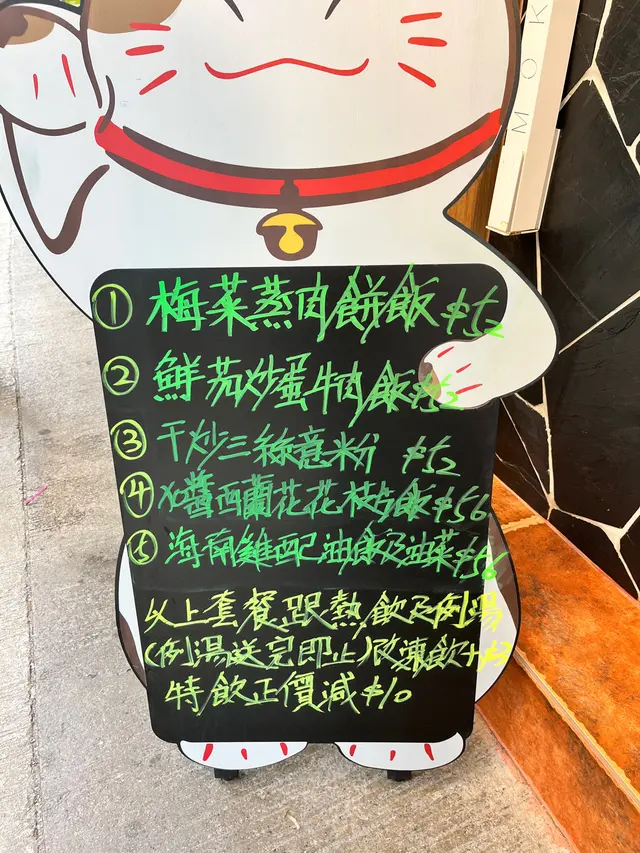 MOK
① 梅菜蒸肉餅飯 $52
② 鮮茄炒蛋牛肉飯 $52
③ 干炒三絲意粉 $52
④ XO醬西蘭花花枝片飯 $56
⑤ 海南雞配油飯及油菜 $56
以上套餐跟熱飲及例湯
(例湯送完即止)改凍飲+$3
特飲正價減$10